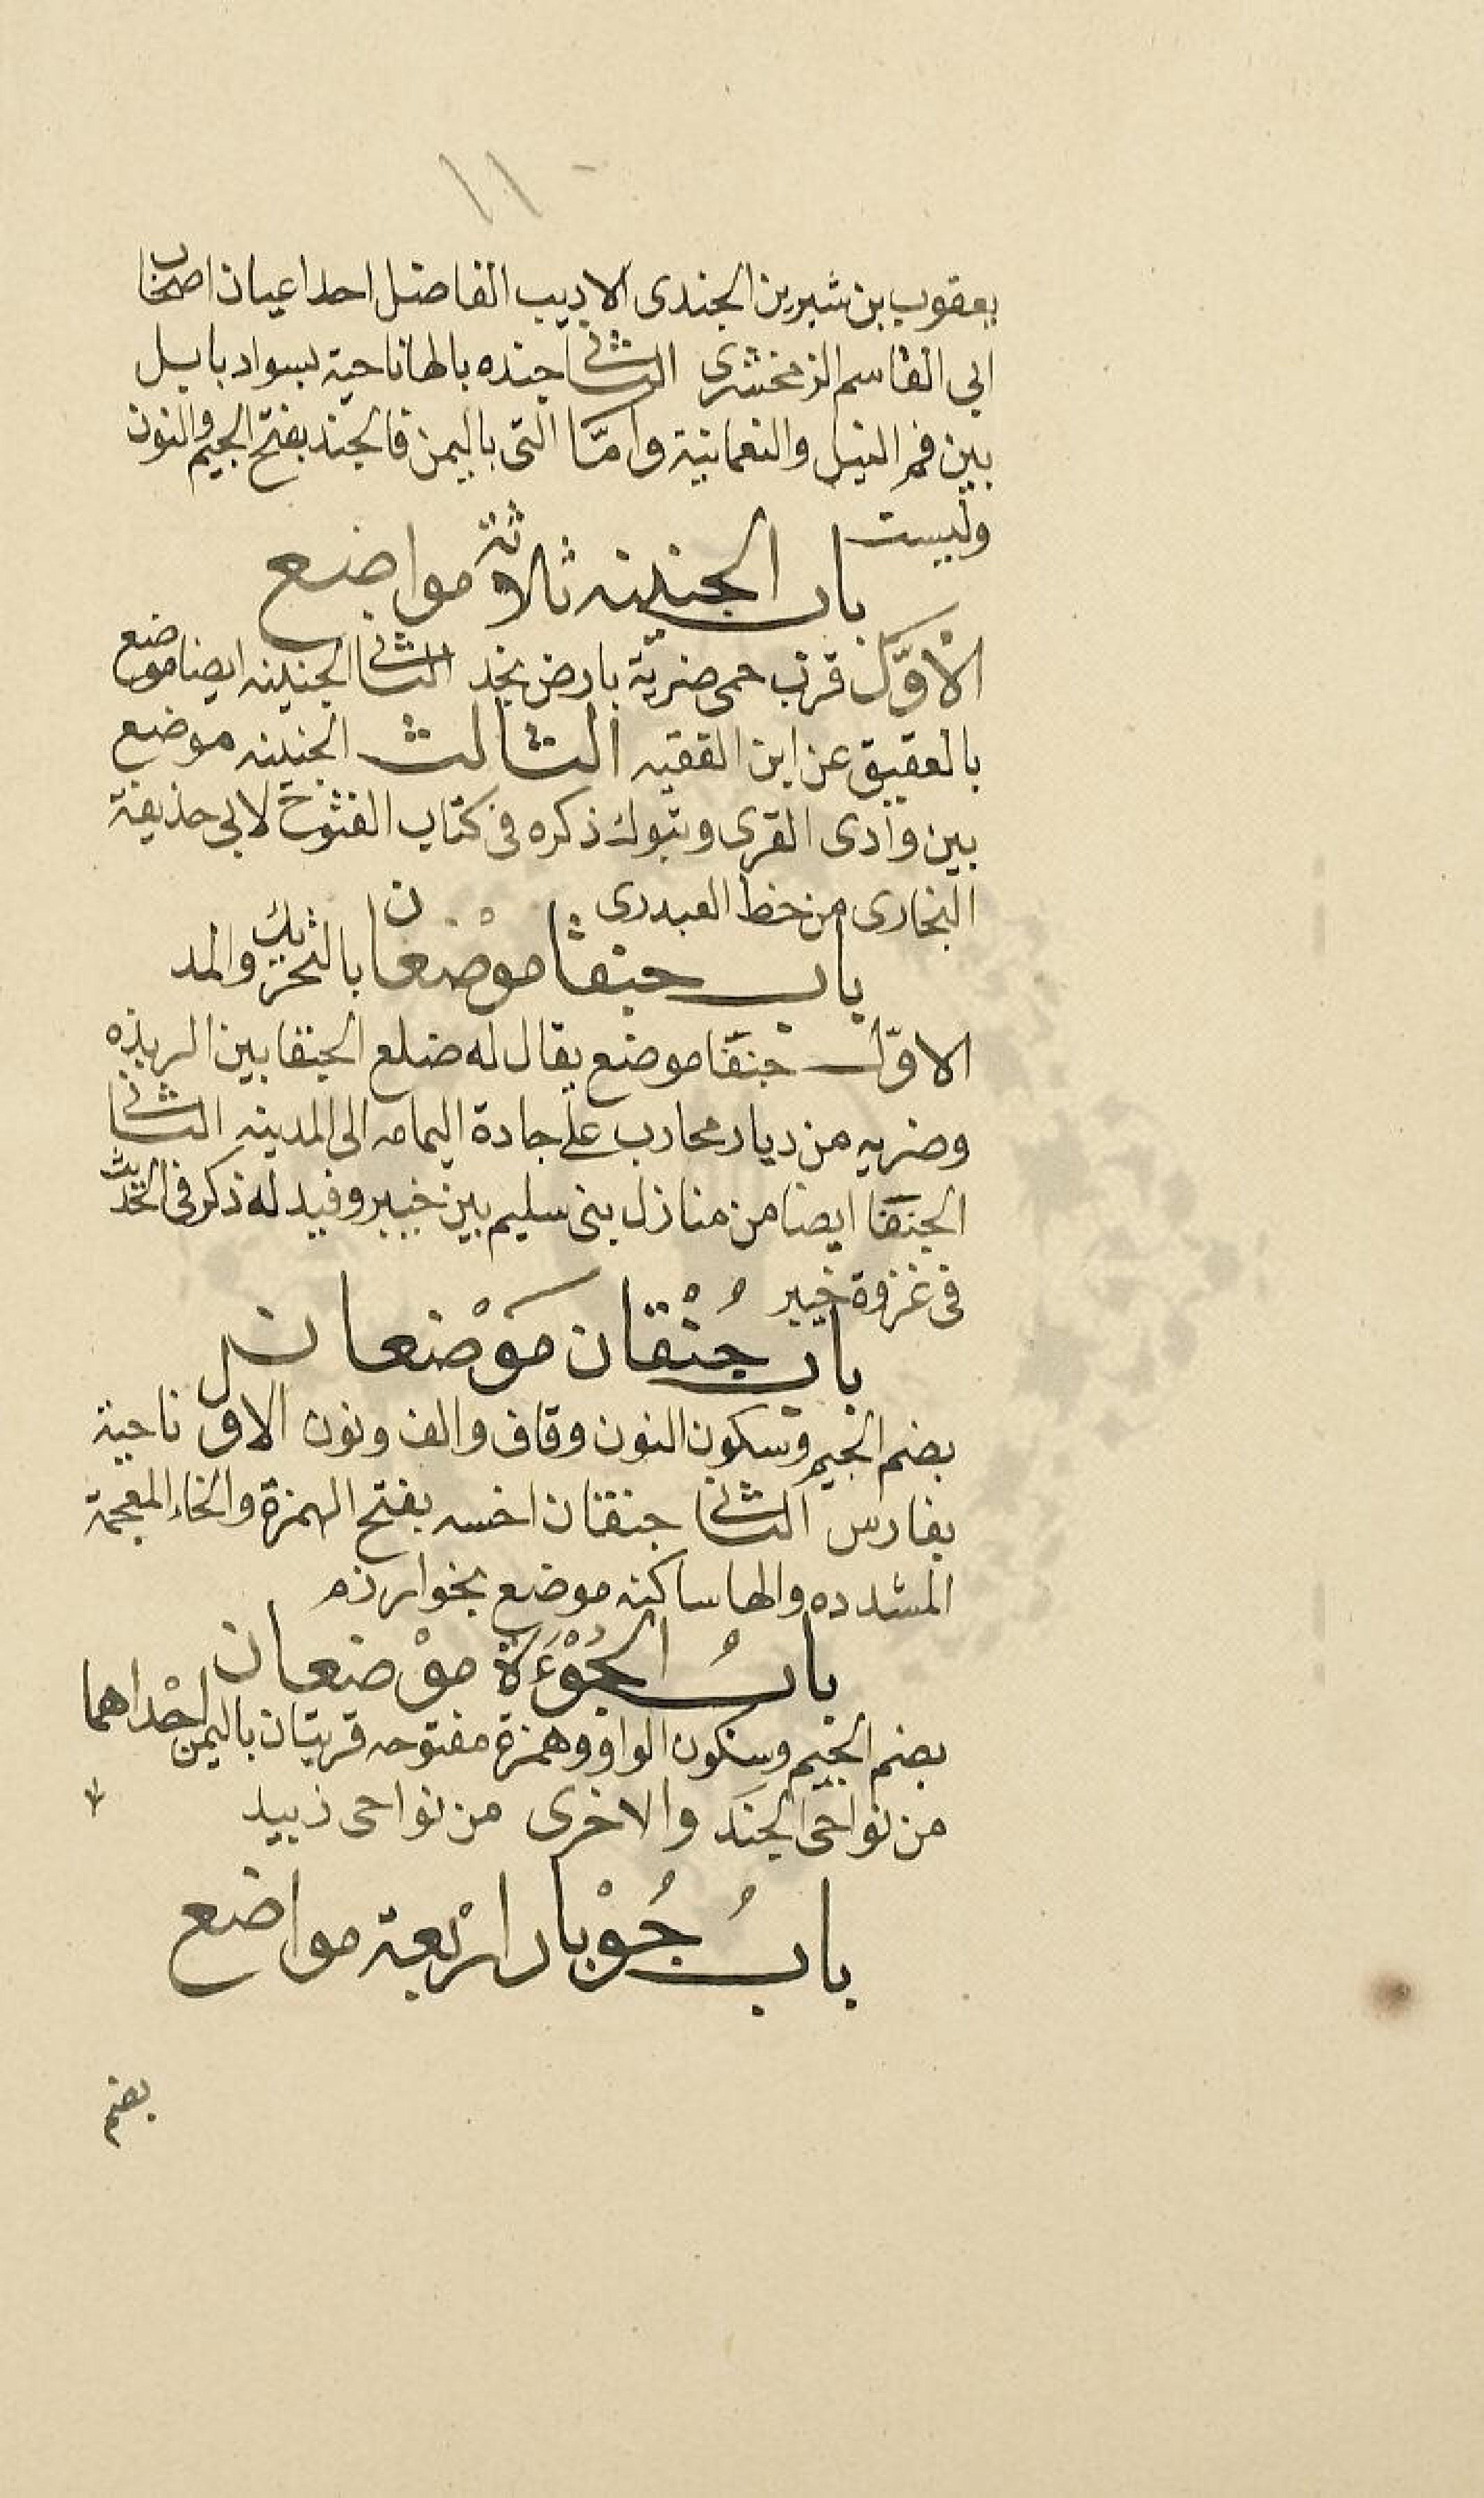 ١١
يعقوب بن شيرين الجندى الاديب الفاضل احد اعيان اصحاب
ابى القاسم الزمخشرى الثانى جنده بالها ناحية بسواد بابل
بين فم النيل والنعمانية وامّا التى باليمن فالجند بفتح الجيم والنون
وليست
باب الجنينه ثلاثة مواضع
الأوّل قرب حمى ضريّة بارض نجد الثانى الجنينه ايضا موضع
بالعقيق عن ابن الفقيه الثالث الجنينه موضع
بين وادى القرى وتبوك ذكره فى كتاب الفتوح لابى حذيفة
البخارى من خط العبدرى
باب جنفا موْضعان بالتحريك والمد
الاوّل جنفا موضع يقال له ضلع الجنفا بين الربذه
وضريه من ديار محارب على جادة اليمامه الى المدينه الثانى
الجنفا ايضا من منازل بنى سليم بين خيبر وفيد له ذكر فى الحديث
فى غزوة خيبر
باب جُنْقان مَوْضعان
بضم الجيم وسكون النون وقاف والف ونون الاول ناحية
بفارس الثانى جنقان اخسه بفتح الهمزة والخاء المعجمة
المشدده والها ساكنه موضع بخوارزم
بابُ الجُوْءَة موْضعان
بضم الجيم وسكون الواو وهمزة مفتوحه قريتان باليمن احْداهما
من نواحى الجَنَد والاخرى من نواحى زبيد
بابُ جُوْبار ارْبعة مواضع
بضم